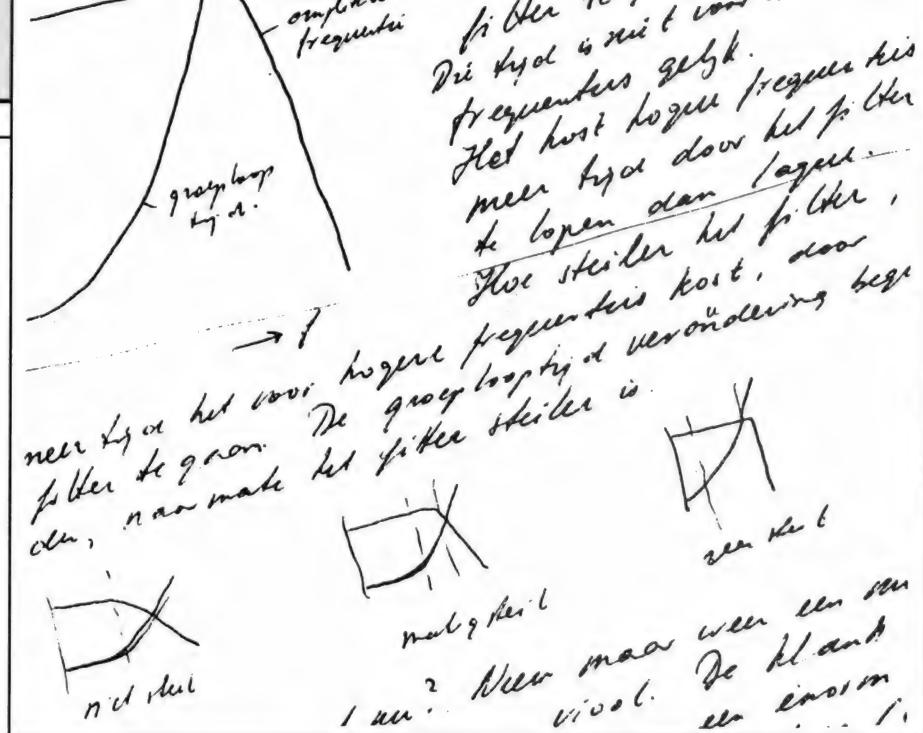 frequentie
filter te
Die tijd is niet voor
frequenties gelijk.
Het kost hogere frequenties
meer tijd door het filter
te lopen dan lagere.
Hoe steiler het filter,
groeploop
tijd.
→ f
meer tijd het voor hogere frequenties kost, door
filter te gaan. De groeplooptijd verandering
naarmate het filter steiler is.
niet steil
matig steil
zeer steil
? Neem maar weer een
viool. De klank
een enorm